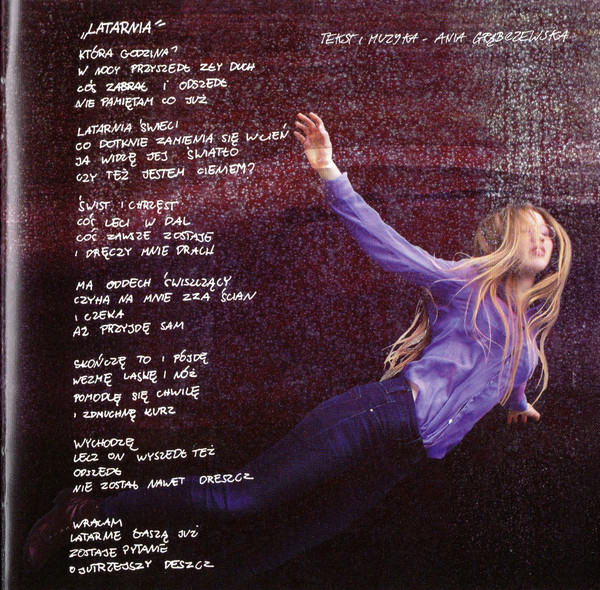 „LATARNIA”
TEKST I MUZYKA - ANIA GRĄBCZEWSKA
KTÓRA GODZINA?
W NOCY PRZYSZEDŁ ZŁY DUCH
COŚ ZABRAŁ I ODSZEDŁ
NIE PAMIĘTAM CO JUŻ
LATARNIA ŚWIECI
CO DOTKNIE ZAMIENIA SIĘ W CIEŃ
JA WIDZĘ JEJ ŚWIATŁO
CZY TEŻ JESTEM CIENIEM?
ŚWIST I CHRZĘST
COŚ LECI W DAL
COŚ ZAWSZE ZOSTAJE
I DRĘCZY MNIE DRACH
MA ODDECH ŚWISZCZĄCY
CZYHA NA MNIE ZZA ŚCIAN
I CZEKA
AŻ PRZYJDĘ SAM
SKOŃCZĘ TO I PÓJDĘ
WEZMĘ LASKĘ I NÓŻ
POMODLĘ SIĘ CHWILĘ
I ZDMUCHNĘ KURZ
WYCHODZĘ
LECZ ON WYSZEDŁ TEŻ
ODSZEDŁ
NIE ZOSTAŁ NAWET DRESZCZ
WRACAM
LATARNIE GASZĄ JUŻ
ZOSTAJE PYTANIE
O JUTRZEJSZY DESZCZ